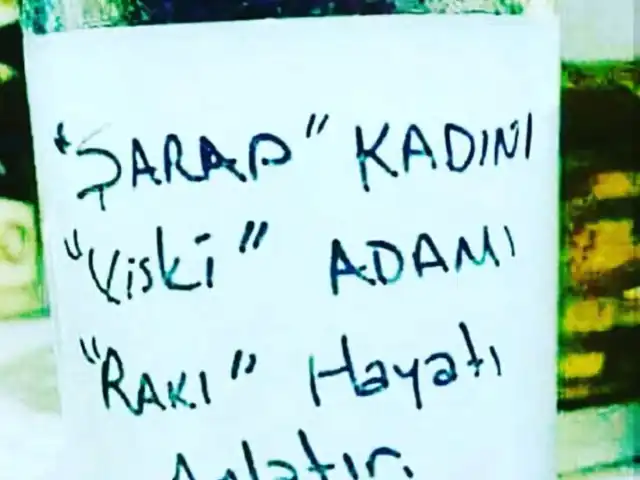 "ŞARAP" KADINI
"Viski" ADAMI
"RAKI" Hayatı
Anlatır.